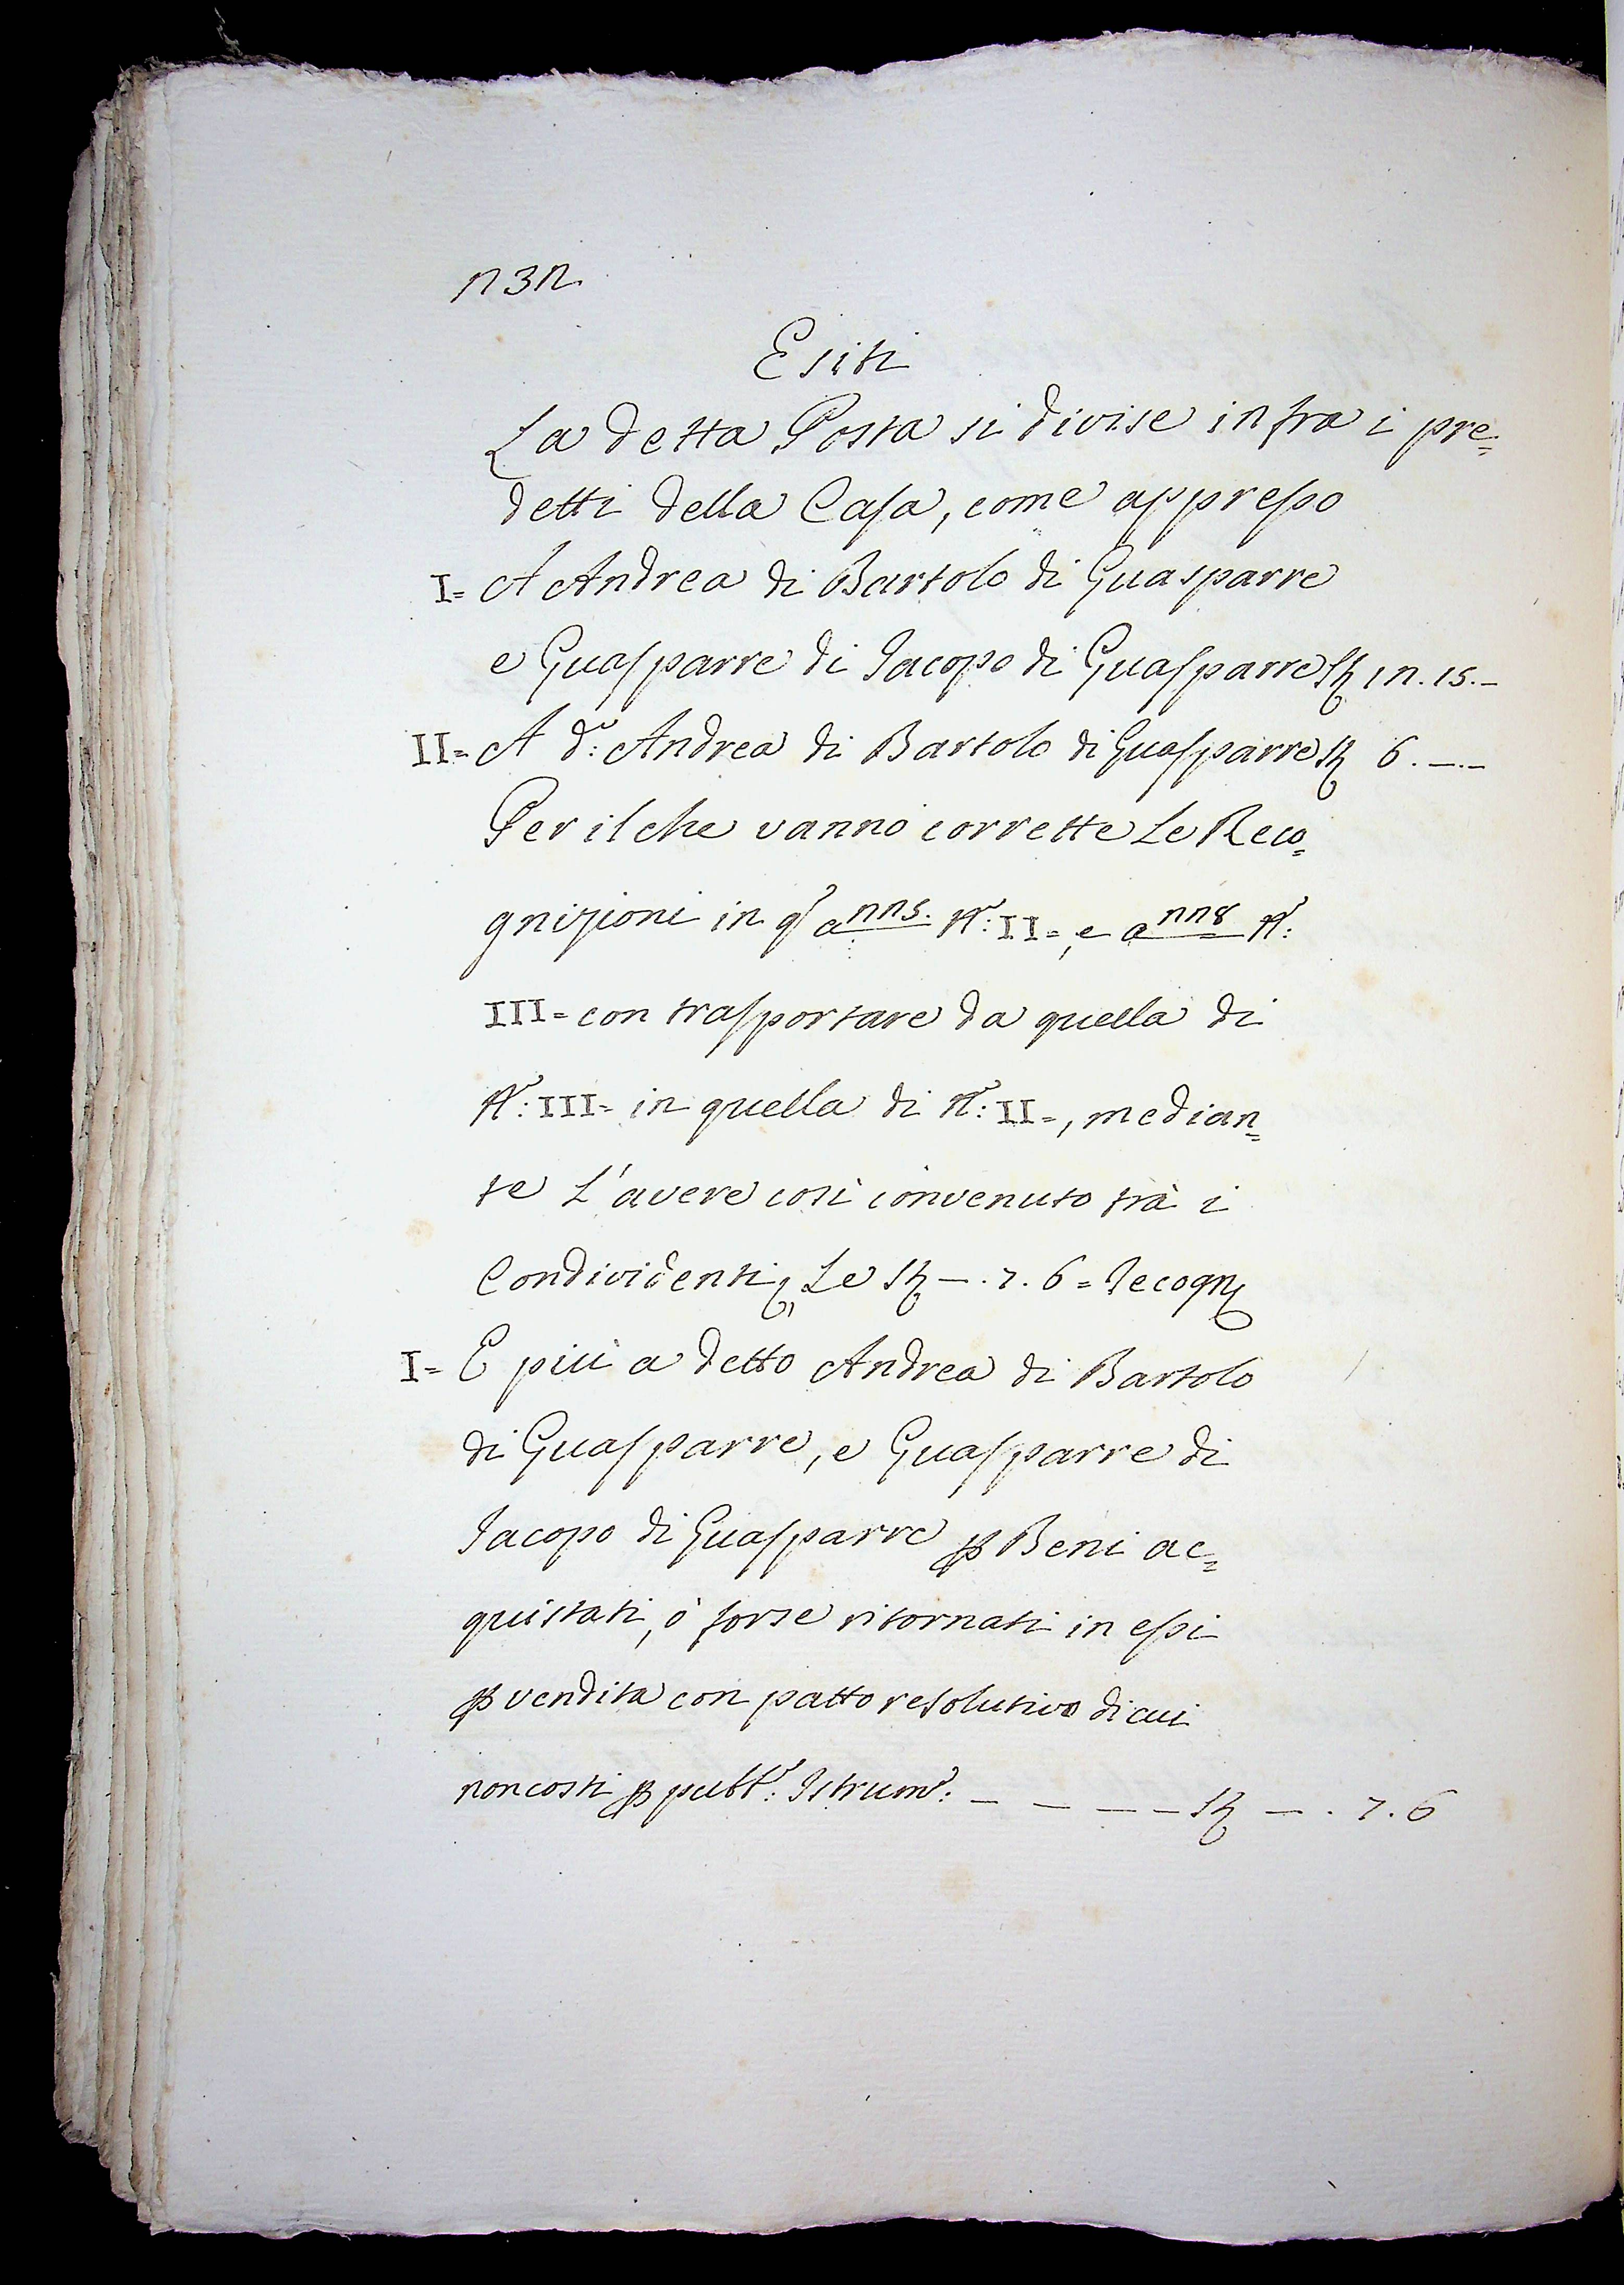 232
Esiti
La detta Posta si divise infra i pre=
detti della Casa, come appresso
I= A Andrea di Bartolo di Guasparre
e Guasparre di Jacopo di Guasparre st 12. 15. –
II= A d.º: Andrea di Bartolo di Guasparre st 6. –. –
Per il che vanno corrette Le Reco=
gnizioni in q.º a 225. N.º: II=, e a 228 N.º:
III= con trasportare da quella di
N.º: III= in quella di n.º: II=, median=
te L'avere così convenuto trà i
Condividenti, Le st –. 7. 6 =
I= E più a detto Andrea di Bartolo
di Guasparre, e Guasparre di
Jacopo di Guasparre p Beni ac=
quistati, ò forse ritornati in essi
p vendita con patto resolutivo di cui
non costi p pubb.º: Istrum.º: – – – – st –. 7. 6